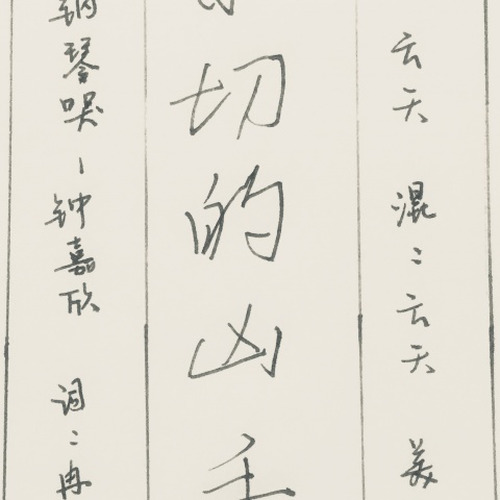 钢琴哭-钟嘉欣 词:冉
切的凶手
云天 混:云天 美